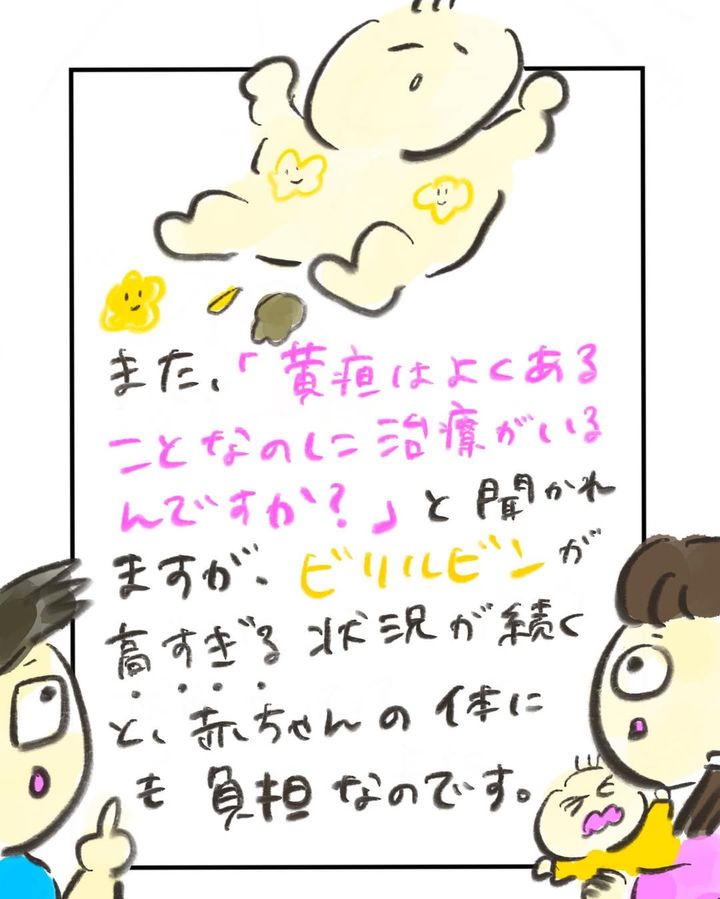 また、「黄疸はよくある
ことなのに治療がいる
んですか?」と聞かれ
ますが、ビリルビンが
高すぎる状況が続く
と、赤ちゃんの体に
も負担なのです。